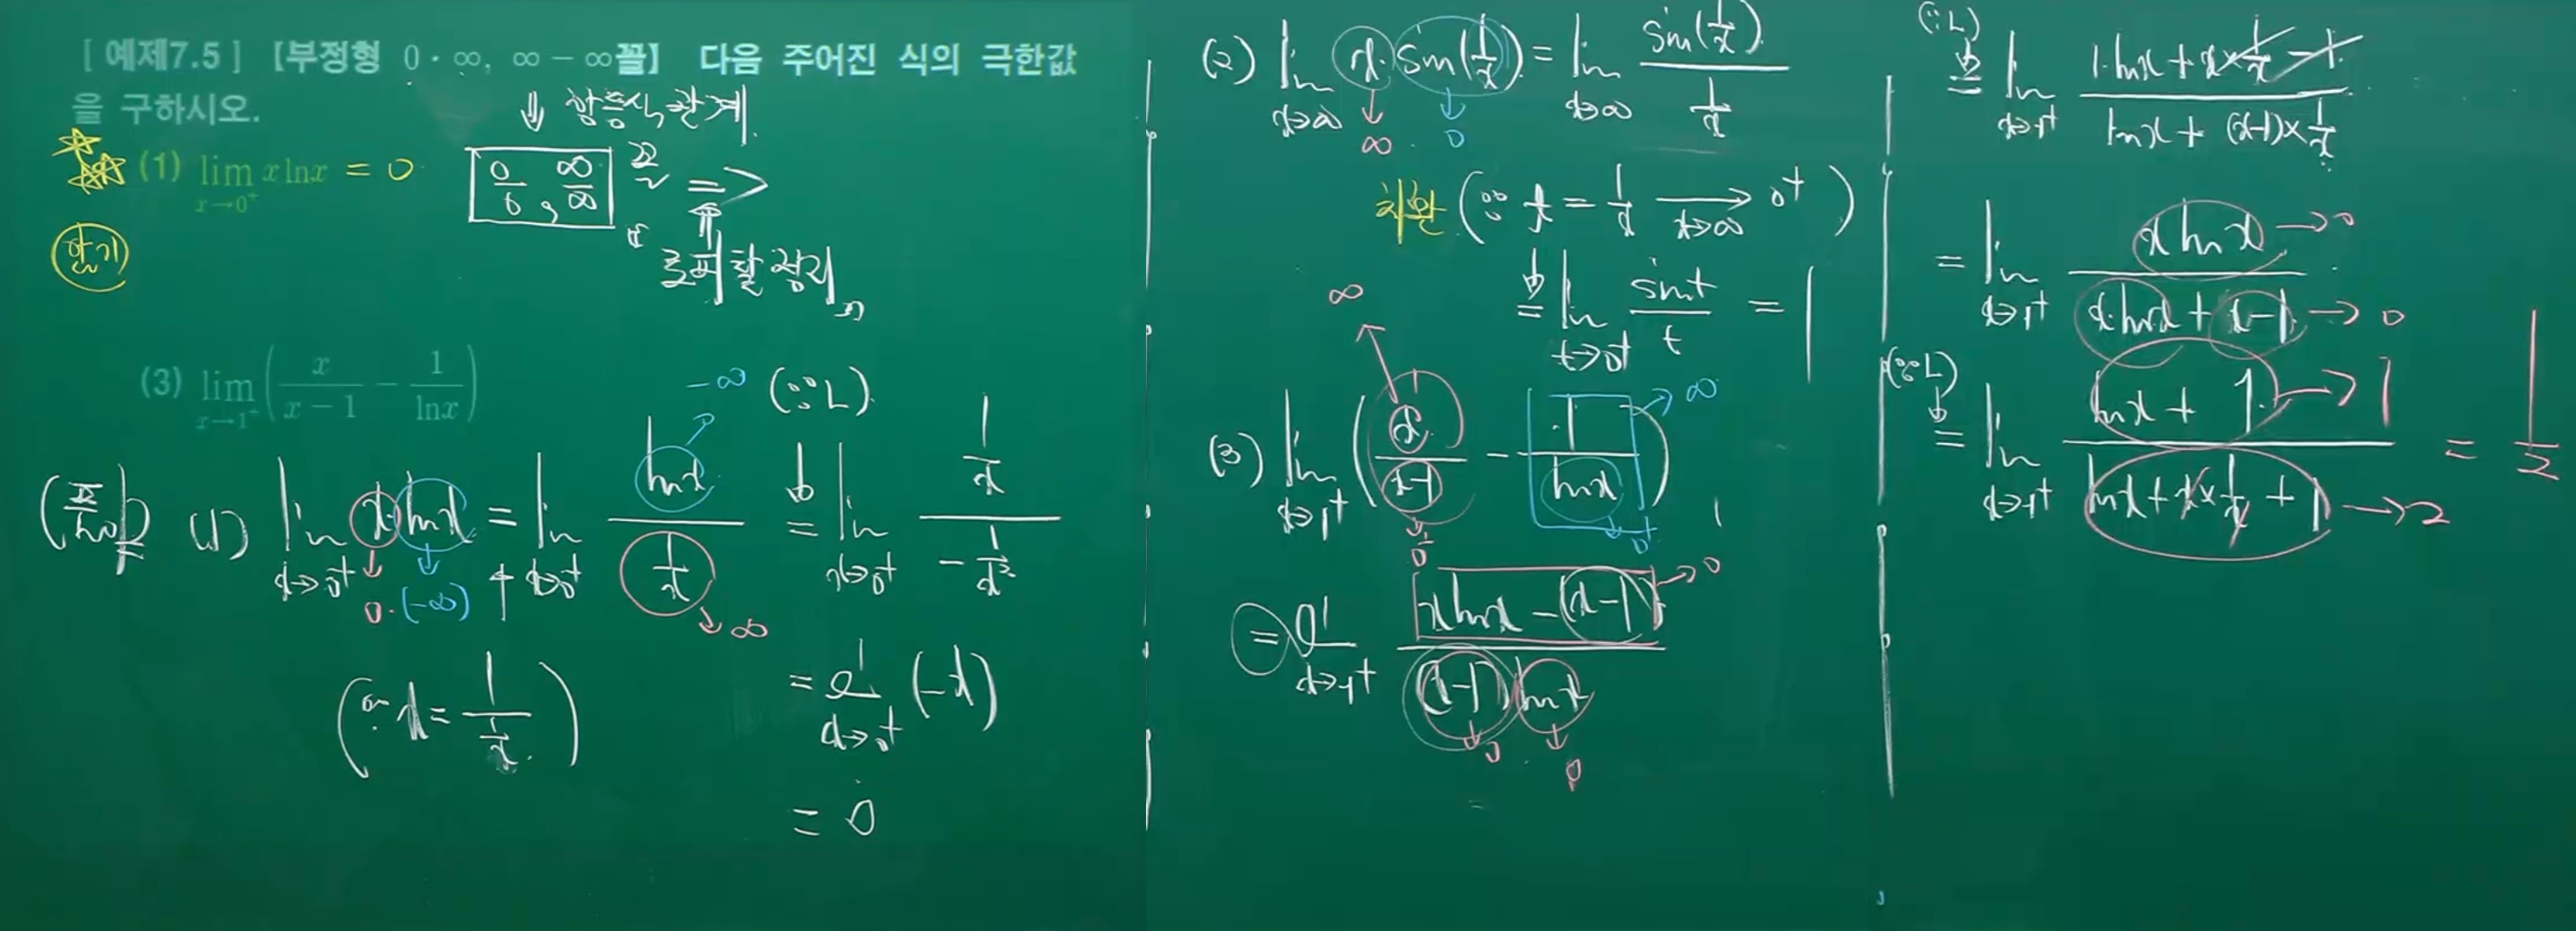 [ 예제7.5 ] [부정형 0 · ∞, ∞ − ∞꼴] 다음 주어진 식의 극한값
을 구하시오.
⇓ 항등식 관계
(1) lim x→0⁺ x ln x = 0
암기
0/0, ∞/∞ 꼴 ⇒
⇑
로피탈 정리
(3) lim x→1⁺ ( x/(x−1) − 1/ln x )
(풀이) (1) lim x→0⁺ x ln x = lim x→0⁺ ln x / (1/x) = lim x→0⁺ (1/x) / (−1/x²)
0·(−∞)
−∞
∞
(∵L)
(∵ x = 1/(1/x))
= lim x→0⁺ (−x)
= 0
(2) lim x→∞ x sin(1/x) = lim x→∞ sin(1/x) / (1/x)
∞ · 0
치환 (∵ t = 1/x → x→∞ 0⁺)
= lim t→0⁺ sin t / t = 1
(3) lim x→1⁺ ( x/(x−1) − 1/ln x )
∞
∞
0⁺
0⁺
= lim x→1⁺ (x ln x − (x−1)) / ((x−1) ln x)
→0
0
0
(∵L)
= lim x→1⁺ (1·ln x + x × 1/x − 1) / (ln x + (x−1) × 1/x)
= lim x→1⁺ x ln x / (x ln x + x−1)
→0
→0
(∵L)
= lim x→1⁺ (ln x + 1) / (ln x + x × 1/x + 1) = 1/2
→1
→2